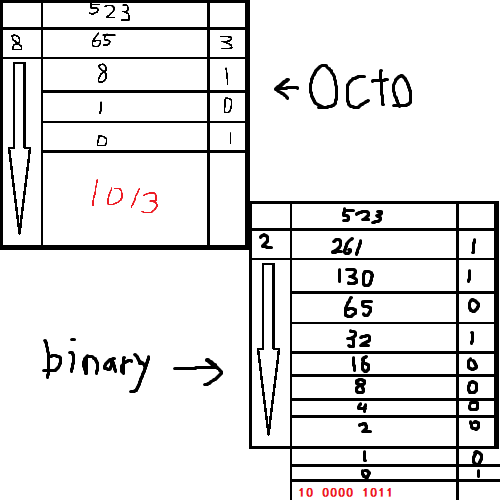 523
8 65 3
8 1
1 0
0 1
1013
← Octo
523
2 261 1
130 1
65 0
32 1
16 0
8 0
4 0
2 0
1 0
0 1
10 0000 1011
binary →